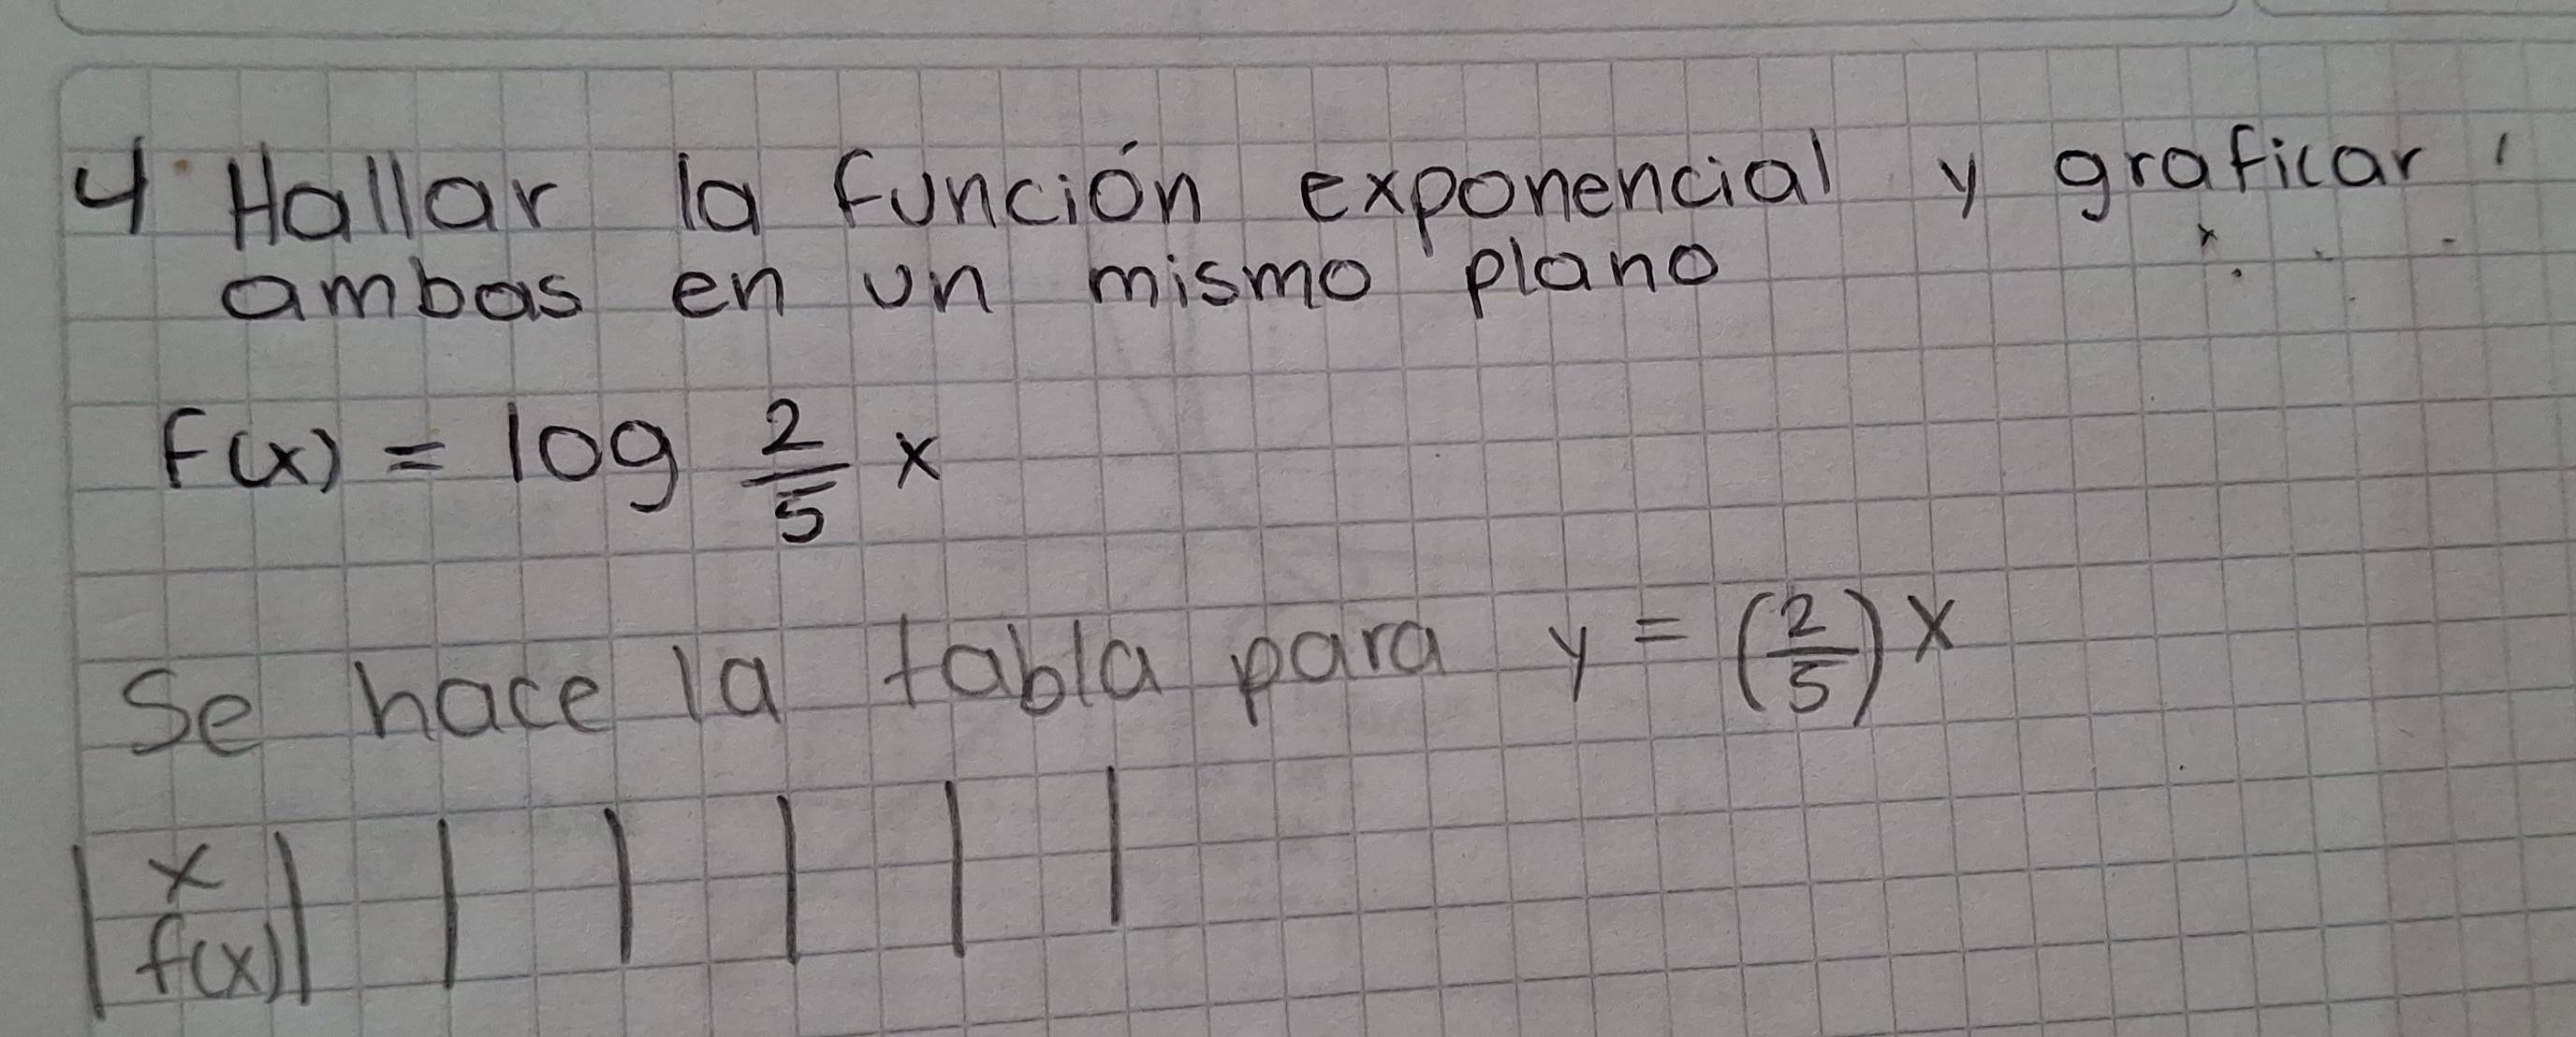 4 Hallar la función exponencial y graficar
ambas en un mismo plano
F(x) = log 2/5 x
Se hace la tabla para y = (2/5) x
x
f(x)